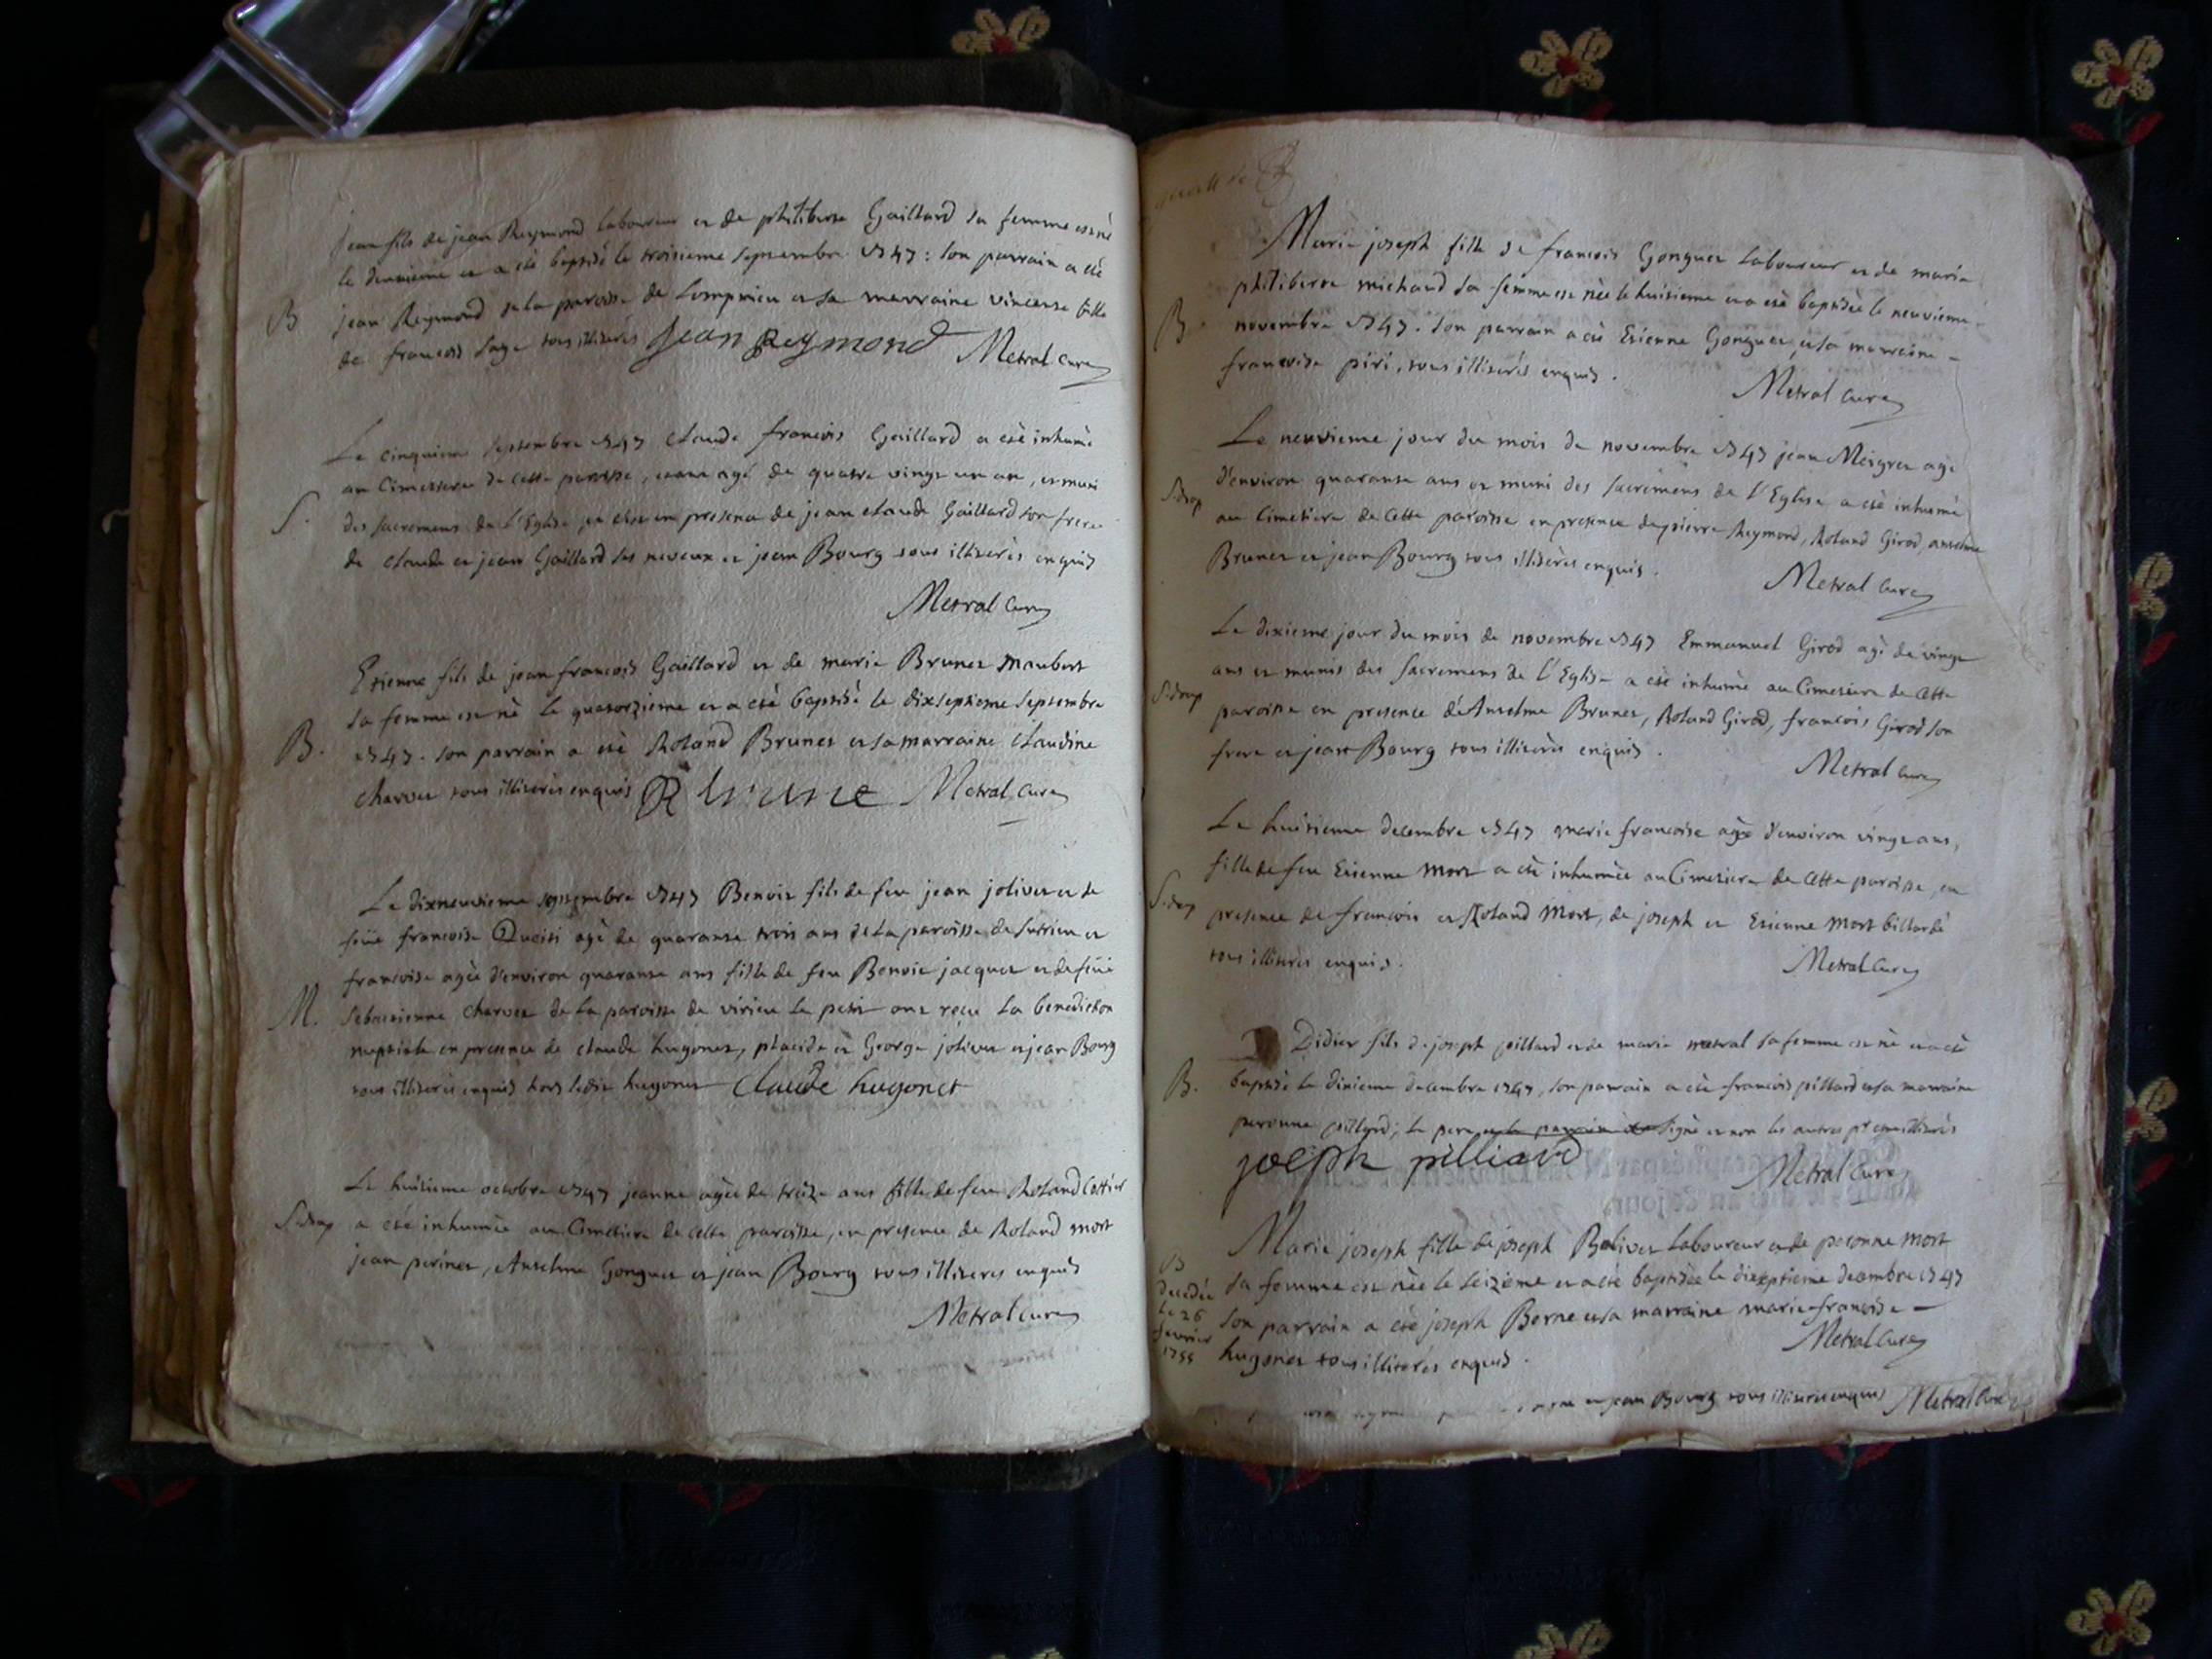 Jean fils de jean Reymond laboureur et de philiberte Gaillard sa femme est né
le deuxieme et a été baptisé le troisieme septembre 1747 : son parrain a été
B jean Reymond de la paroisse de Lompnieu et sa marraine vincente fille
de francois Sage tous illiterés Jean Reymond Metral curé
Le cinquieme septembre 1747 claude francois Gaillard a eté inhumé
au Cimetiere de cette paroisse, etant agé de quatre vingt un an, et muni
S. des sacremens de l'Eglise en presence de jean claude Gaillard son frere
de claude et jean Gaillard ses neveux et jean Bourg tous illiterés enquis
Metral curé
Etienne fils de jean francois Gaillard et de marie Brunet maubert
sa femme est né le quatorzieme et a eté baptisé le dixseptieme septembre
B. 1747. son parrain a eté Roland Brunet et sa marraine claudine
charvet tous illiterés enquis R brune Metral curé
Le dixneuvieme septembre 1747 Benoit fils de feu jean jolivet et de
feüe francoise agé de quarante trois ans de la paroisse de Sutrieu et
francoise agée d'environ quarante ans fille de feu Benoit jacquet et de feüe
M. Sebastienne charvet de la paroisse de virieu le petit ont reçu la benediction
nuptiale en presence de claude hugonet, placide et George jolivet et jean Bourg
tous illiterés enquis hors ledit hugonet claude hugonet
Le huitieme octobre 1747 jeanne agée de treize ans fille de feu Roland Cottier
S. drap a eté inhumée au Cimetiere de cette paroisse, en presence de Roland mort
jean perinet, Anselme Gonguet et jean Bourg tous illiteres enquis
Metral curé
Marie joseph fille de francois Gonguet Laboureur et de marie
philiberte michaud sa femme est née le huitieme et a eté baptisée le neuvieme
B. novembre 1747. son parrain a eté Etienne Gonguet, et sa marraine
francoise piri, tous illiterés enquis.
Metral curé
Le neuvieme jour du mois de novembre 1747 jean Meigret agé
d'environ quarante ans et muni des sacremens de l'Eglise a eté inhumé
S. drap au Cimetiere de cette paroisse en presence de pierre Reymond, Roland Girod, anselme
Brunet et jean Bourg tous illiterés enquis.
Metral curé
Le dixieme jour du mois de novembre 1747 Emmanuel Girod agé de vingt
ans et munis des Sacremens de l'Eglise a eté inhumé au Cimetiere de cette
S. drap paroisse en presence d'Anselme Brunet, Roland Girod, francois Girod son
frere et jean Bourg tous illiterés enquis.
Metral curé
Le huitieme decembre 1747 marie francoise agée d'environ vingt ans,
fille de feu Etienne mort a eté inhumée au Cimetiere de cette paroisse, en
S. drap presence de francois et Roland mort, de joseph et Etienne mort billardé
tous illiterés enquis.
Metral curé
Didier fils de joseph pillard et de marie metral sa femme est né et a eté
B. baptisé le dixieme decembre 1747, son parrain a eté francois pillard et sa marraine
peronne pillard; le pere et le parrain signé et non les autres illiterés
joseph pilliard Metral curé
Marie joseph fille de joseph Bolivet Laboureur et de peronne mort
B
sa femme est née le seizieme et a eté baptisée le dixseptieme decembre 1747
decedée
le 26
fevrier
1755
son parrain a eté joseph Berne et sa marraine marie francoise
hugonet tous illiterés enquis.
Metral curé
et jean Bourg tous illiterés enquis Metral curé